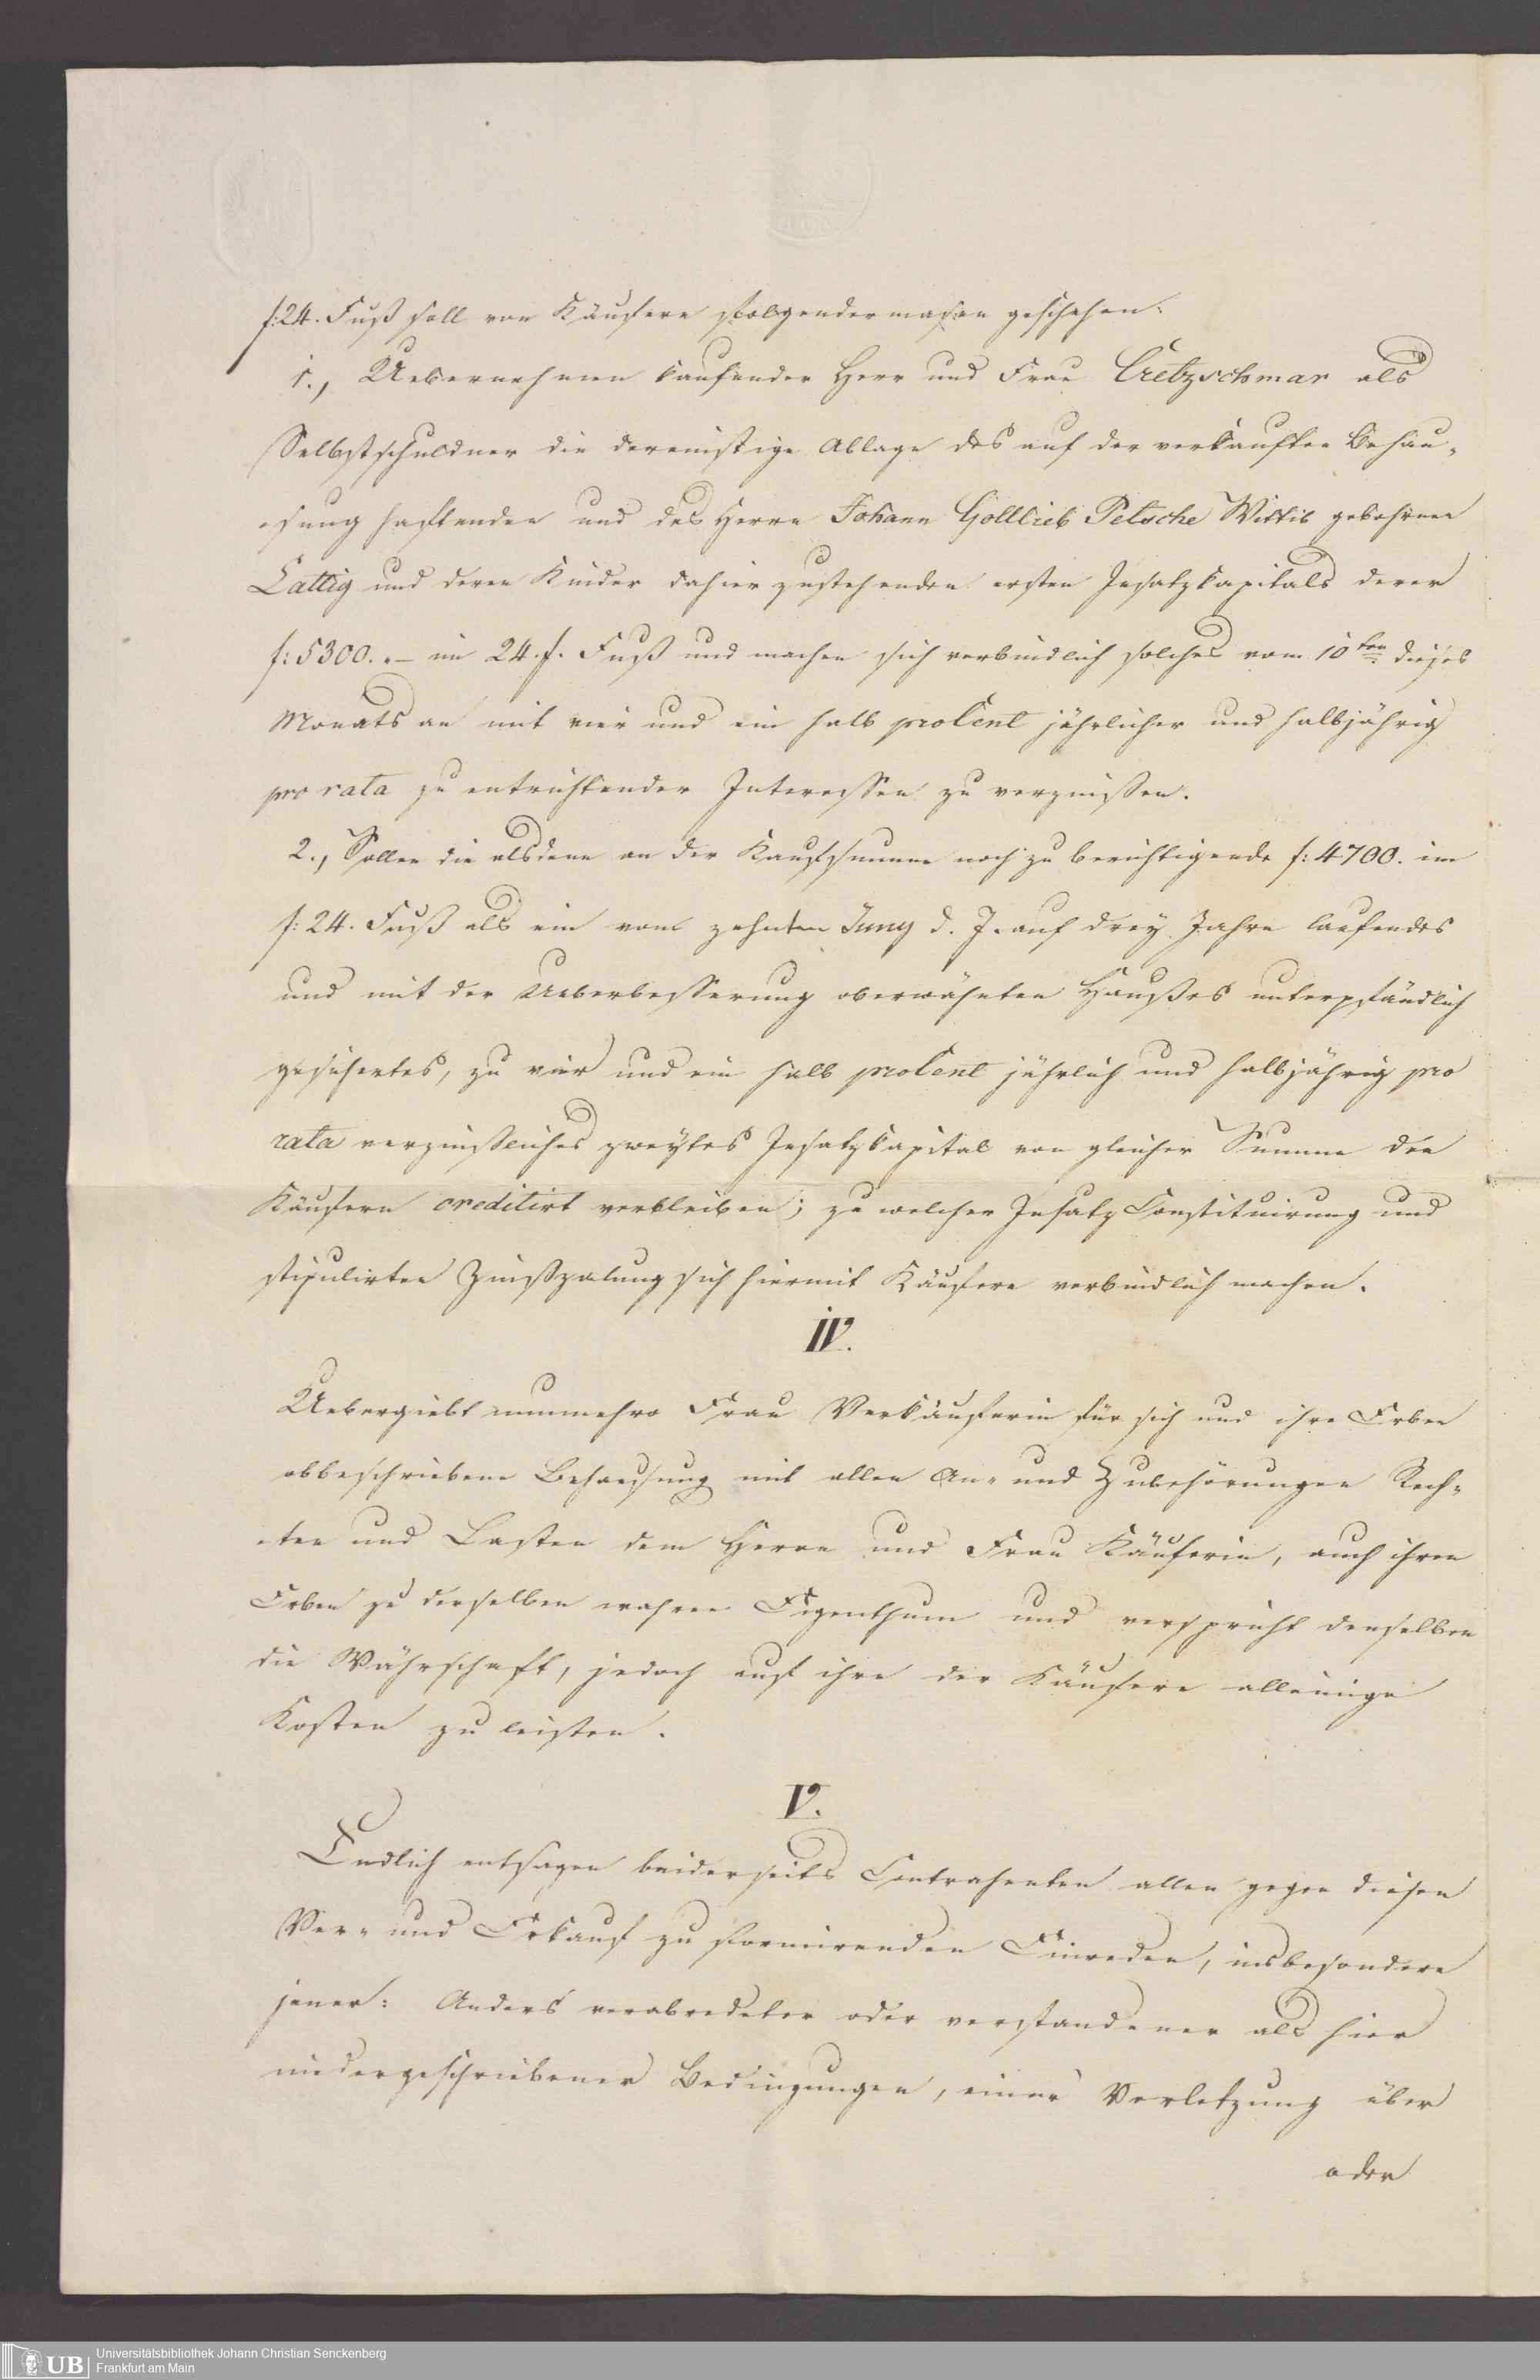 f: 24. Fuß soll von Käufern folgendermasen geschehen:
1., Uebernehmen kaufender Herr und Frau Cretzschmar als
Selbstschuldner die dereinstige Ablage des auf der verkauften Behau-
-sung haftenden und des Herrn Johann Gottlieb Petsche Wittib gebohrnen
Lattig und deren Kinder dahier zustehenden ersten Insatzkapitals derer
f: 5300. – im 24. f. Fuß und machen sich verbindlich solches vom 10ten dieses
Monats an mit vier und ein halb proCent jährlicher und halbjährig
pro rata zu entrichtender Interessen zu verzinssen.
2., Sollen die alsdann an der Kaufsumme noch zu berichtigende f: 4700. im
f: 24. Fuß als ein vom zehnten Juny d. J. auf drey Jahre laufendes
und mit der Ueberbesserung oberwähnten Haußes unterpfändlich
gesichertes, zu vier und ein halb proCent jährlich und halbjährig pro
rata verzinßliches zweytes Insatzkapital von gleicher Summe den
Käufern creditirt verbleiben; zu welcher Insatz Constituirung und
stipulirten Zinßzalung sich hiermit Käufere verbindlich machen.
IV.
Uebergiebt nunmehro Frau Verkäuferin für sich und ihre Erben
obbeschriebene Behausung mit allen An- und Zubehörungen Rech-
-ten und Lasten dem Herrn und Frau Käuferin, auch ihren
Erben zu derselben wahren Eigenthum und verspricht denselben
die Währschaft, jedoch auf ihre der Käufere alleinige
Kosten zu leisten.
V.
Endlich entsagen beiderseits Contrahenten allen gegen diesen
Ver- und Erkauf zu formirenden Einreden, insbesondere
jener: Anders verabredeter oder verstandener als hier
niedergeschriebener Bedingungen, einer Verletzung über
oder
UB
Universitätsbibliothek Johann Christian Senckenberg
Frankfurt am Main